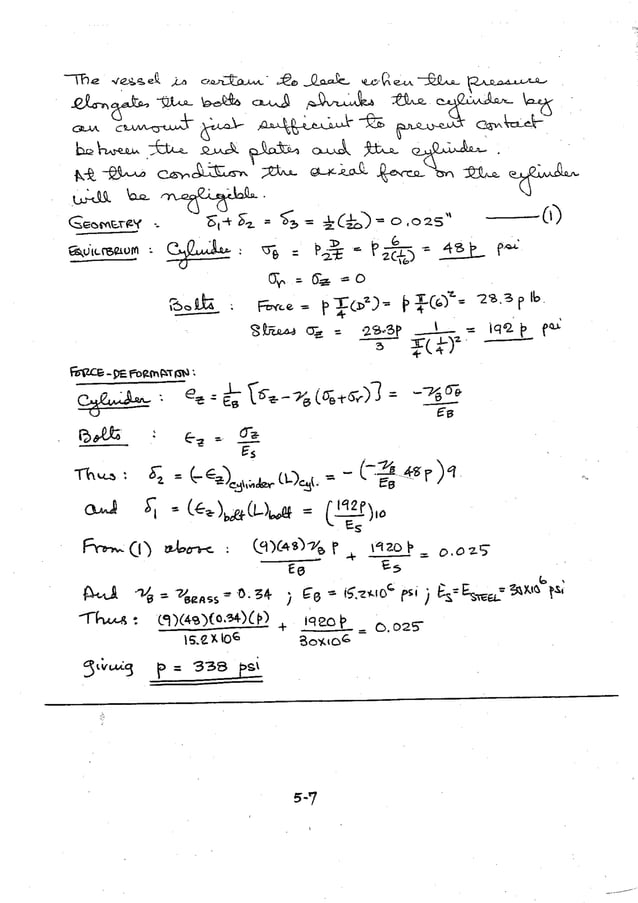 The vessel is certain to leak when the pressure
elongates the bolts and shrinks the cylinder by
an amount just sufficient to prevent contact
between the end plates and the cylinder.
At this condition the axial force on the cylinder
will be negligible.
GEOMETRY : δ₁ + δ₂ = δ₃ = ½(1/20) = 0.025" —— (1)
EQUILIBRIUM : Cylinder : σ_θ = p D/2t = p 6/2(1/16) = 48 p psi
σ_r = σ_z = 0
Bolts : Force = p π/4 (D²) = p π/4 (6)² = 28.3 p lb.
Stress σ_z = 28.3p/3 1/(π/4 (¼)²) = 192 p psi
FORCE-DEFORMATION :
Cylinder : e_z = 1/E_B [σ_z - ν_B (σ_θ + σ_r)] = -ν_B σ_θ/E_B
Bolts : ε_z = σ_z/E_S
Thus : δ₂ = (-ε_z)cylinder (L)cyl. = - (-ν_B/E_B 48 p) 9
and δ₁ = (ε_z)bolt (L)bolt = (192p/E_S) 10
From (1) above : (9)(48) ν_B p/E_B + 1920 p/E_S = 0.025
And ν_B = ν_BRASS = 0.34 ; E_B = 15.2×10⁶ psi ; E_S = E_STEEL = 30×10⁶ psi
Thus : (9)(48)(0.34)(p)/15.2×10⁶ + 1920 p/30×10⁶ = 0.025
giving p = 338 psi
5-7